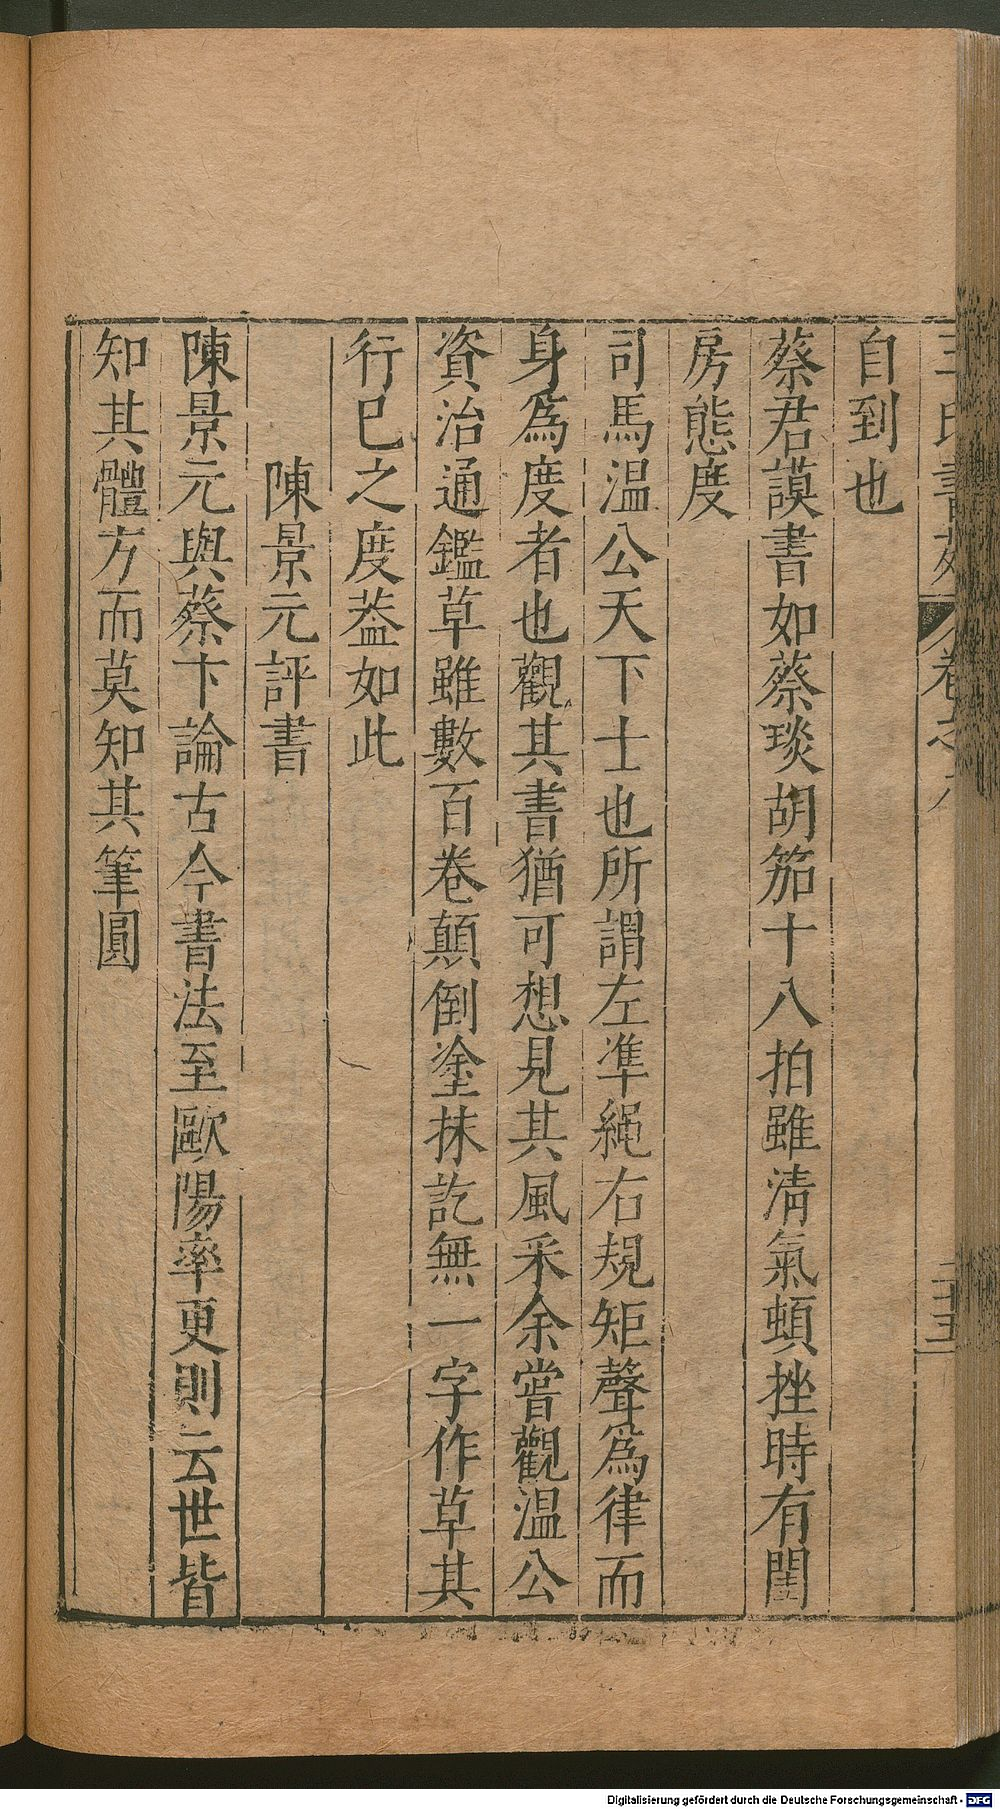 王氏書苑 卷之八 二十五
自到也
蔡君謨書如蔡琰胡笳十八拍雖清氣頓挫時有閨
房態度
司馬温公天下士也所謂左凖繩右規矩聲爲律而
身爲度者也觀其書猶可想見其風采余嘗觀温公
資治通鑑草雖數百卷顛倒塗抹訖無一字作草其
行巳之度葢如此
陳景元評書
陳景元與蔡卞論古今書法至歐陽率更則云世皆
知其體方而莫知其筆圓
Digitalisierung gefördert durch die Deutsche Forschungsgemeinschaft - DFG